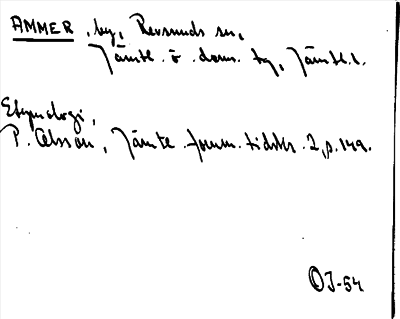 AMMER, by, Revsunds sn,
Jämtl. ö. doms. tg, Jämtl. l.
Etymologi,
P. Olsson, Jämtl. fornm. tidskr. 2, p. 149.
OJ-54